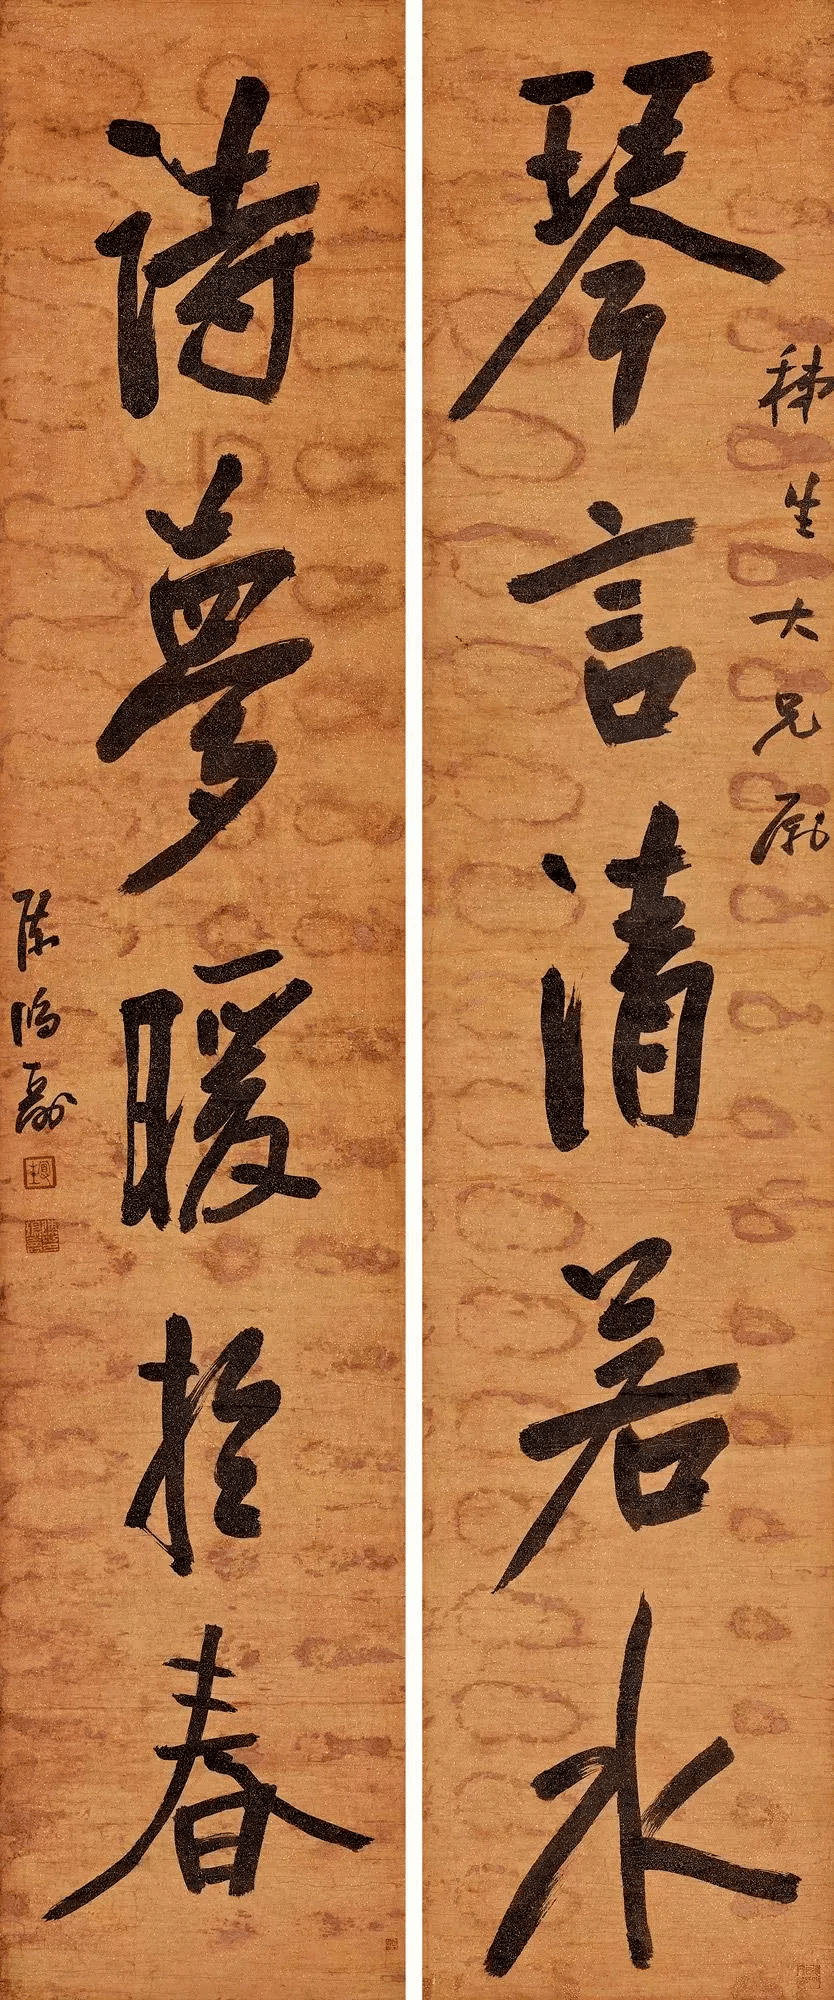 生大兄屬
琴言清若水
詩夢暖於春
陳鴻壽